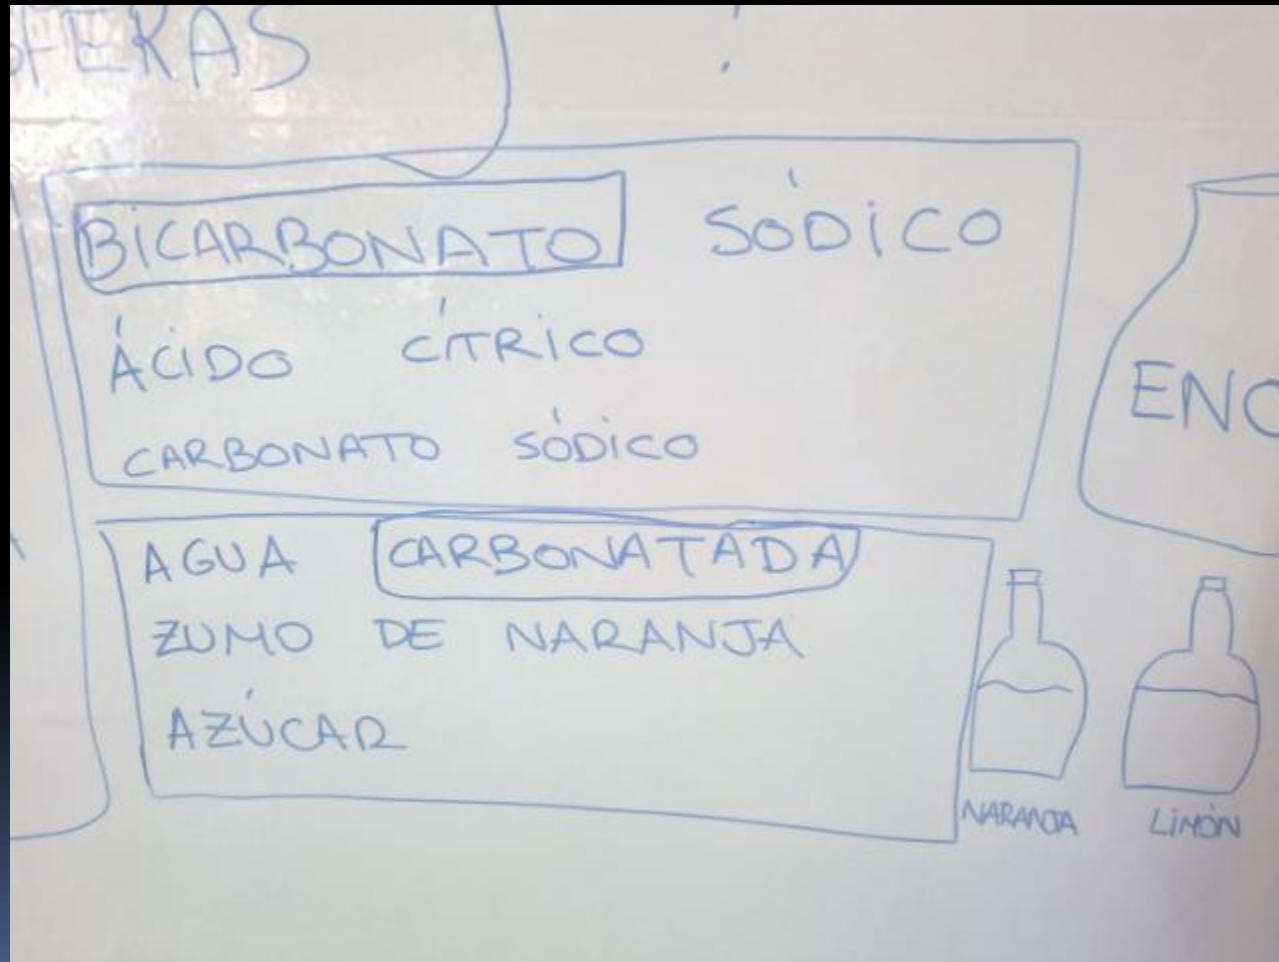 BICARBONATO SÓDICO
ÁCIDO CÍTRICO
CARBONATO SÓDICO
ENO
AGUA CARBONATADA
ZUMO DE NARANJA
AZÚCAR
NARANJA
LIMÓN